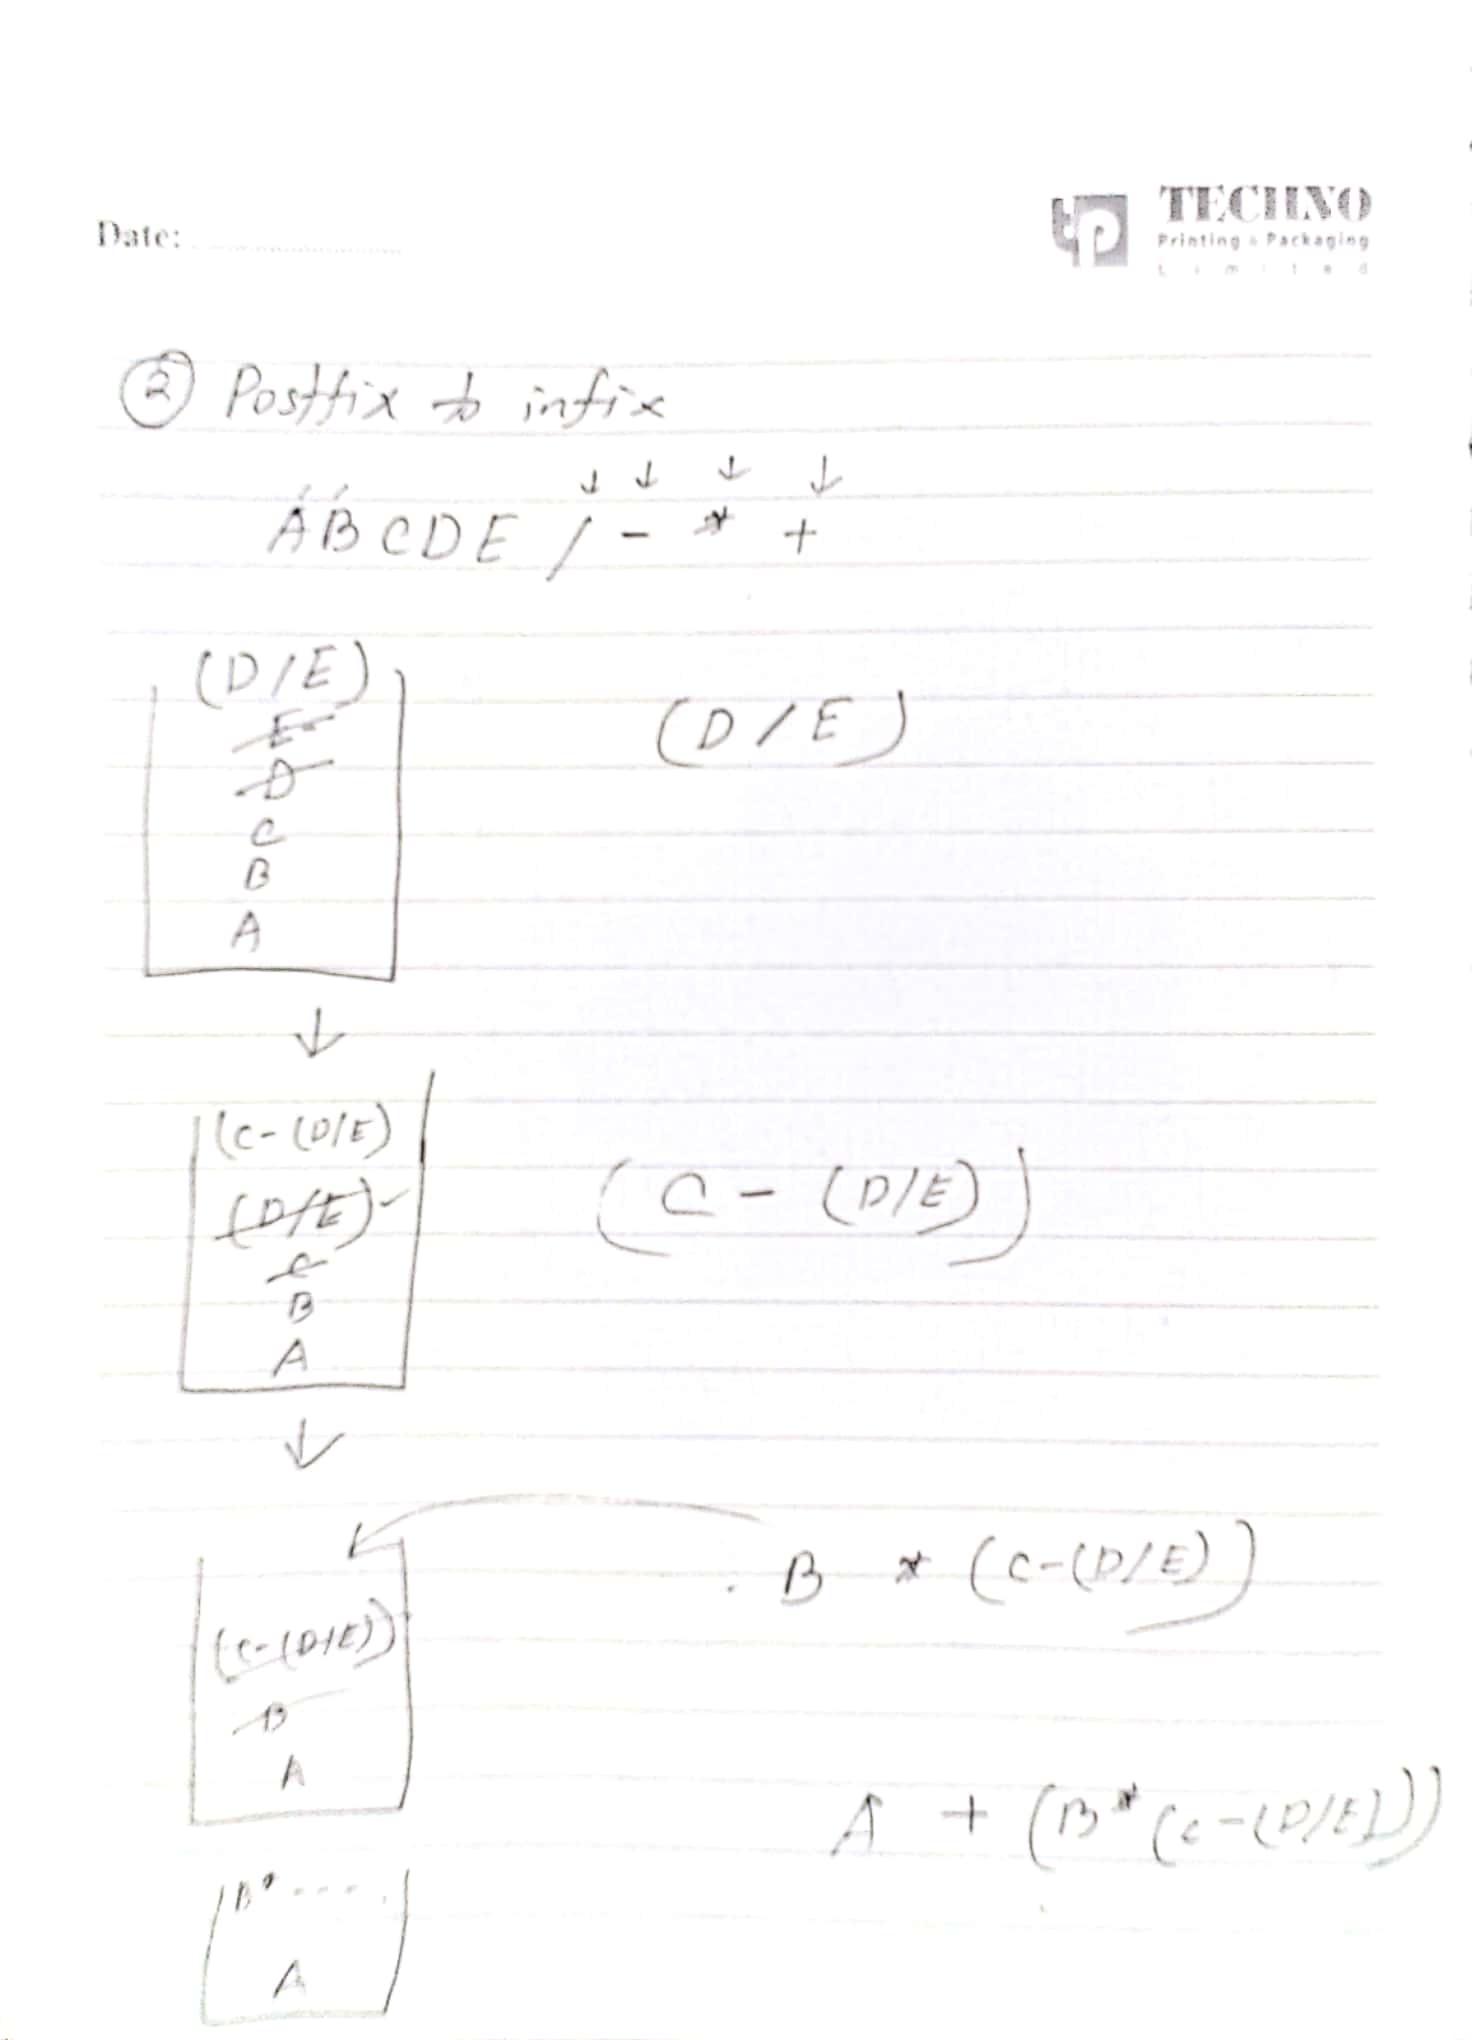 Date:
TECHNO
Printing & Packaging
Limited
② Postfix to infix
↓ ↓ ↓ ↓
A B C D E / - * +
(D/E)
E
D
C
B
A
(D/E)
↓
(C-(D/E)
(D/E)
C
B
A
(C - (D/E))
↓
B * (C-(D/E))
(C-(D/E))
B
A
A + (B*(C-(D/E)))
B* ----
A